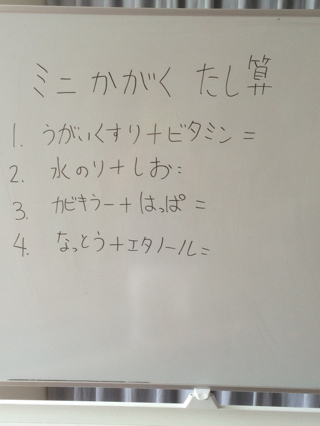 ミニ かがく たし算
1. うがいくすり+ビタミン=
2. 水のり+しお=
3. カビキラー+はっぱ=
4. なっとう+エタノール=